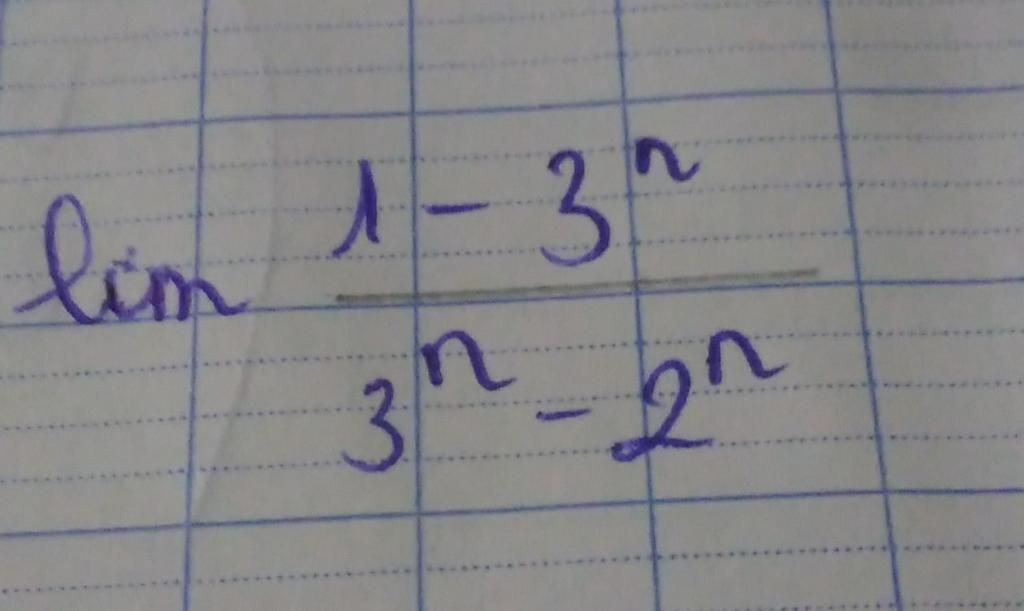 lim 1 - 3^n
3^n - 2^n